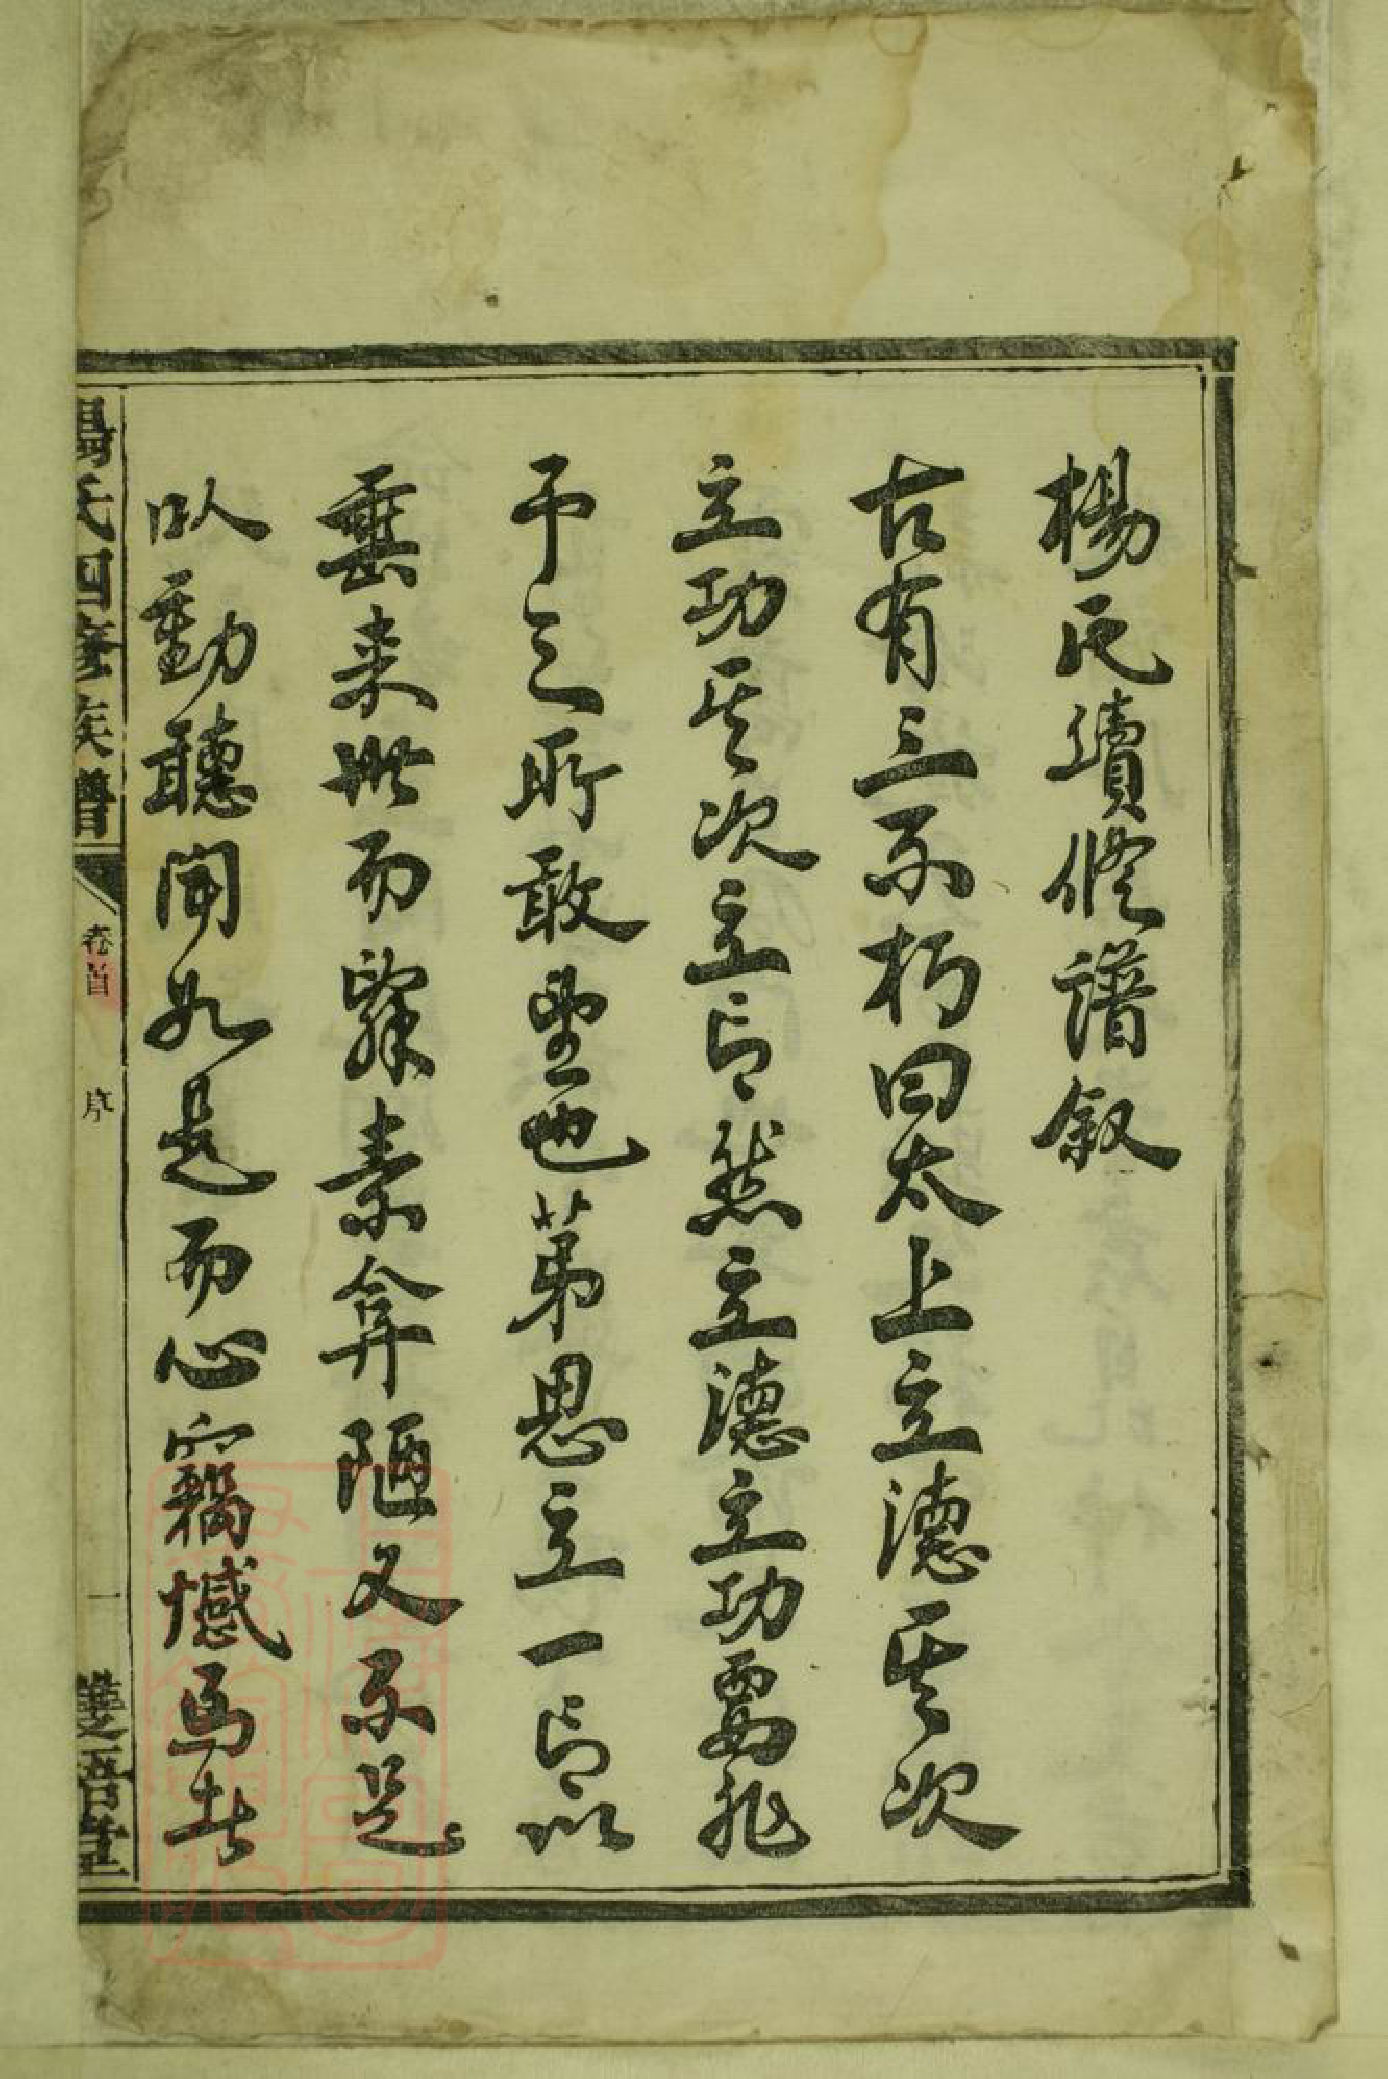 楊氏續修譜叙
古有三不朽曰太上立德其次
立功其次立言然立德立功要非
予之所敢望也苐思立一言以
垂来世而学素弇陋又不足
以動聽聞如是而心竊憾焉者
楊氏四修族譜
卷首
序
一